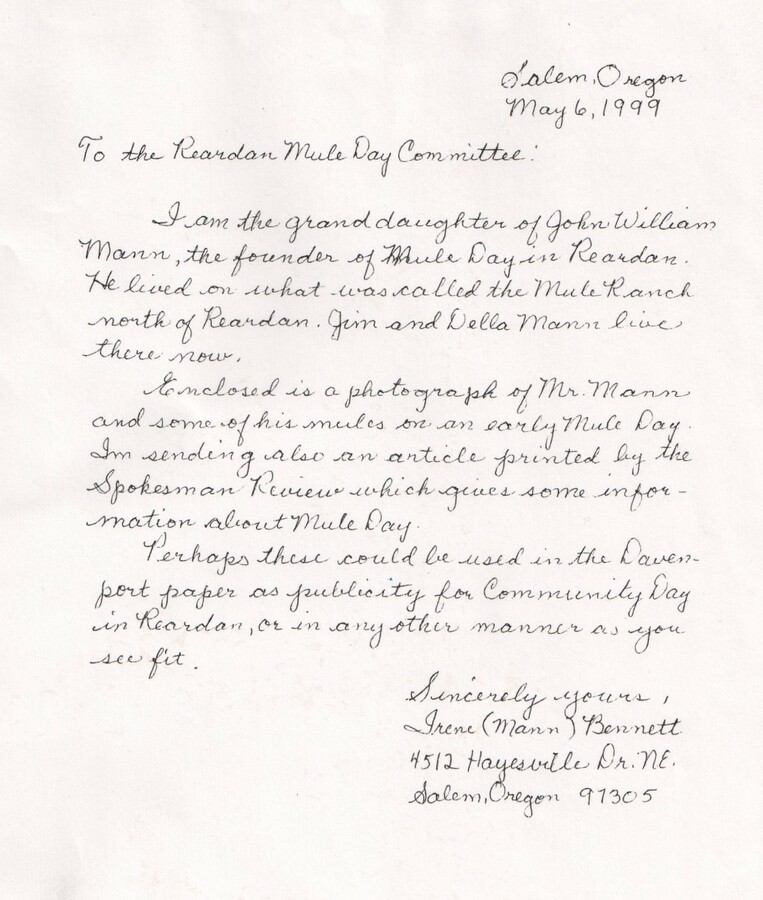 Salem, Oregon
May 6, 1999
To the Reardan Mule Day Committee:
I am the granddaughter of John William
Mann, the founder of Mule Day in Reardan.
He lived on what was called the Mule Ranch
north of Reardan. Jim and Della Mann live
there now.
Enclosed is a photograph of Mr. Mann
and some of his mules on an early Mule Day.
Im sending also an article printed by the
Spokesman Review which gives some infor-
mation about Mule Day.
Perhaps these could be used in the Daven-
port paper as publicity for Community Day
in Reardan, or in any other manner as you
see fit.
Sincerely yours,
Irene (Mann) Bennett
4512 Hayesville Dr. NE.
Salem, Oregon 97305